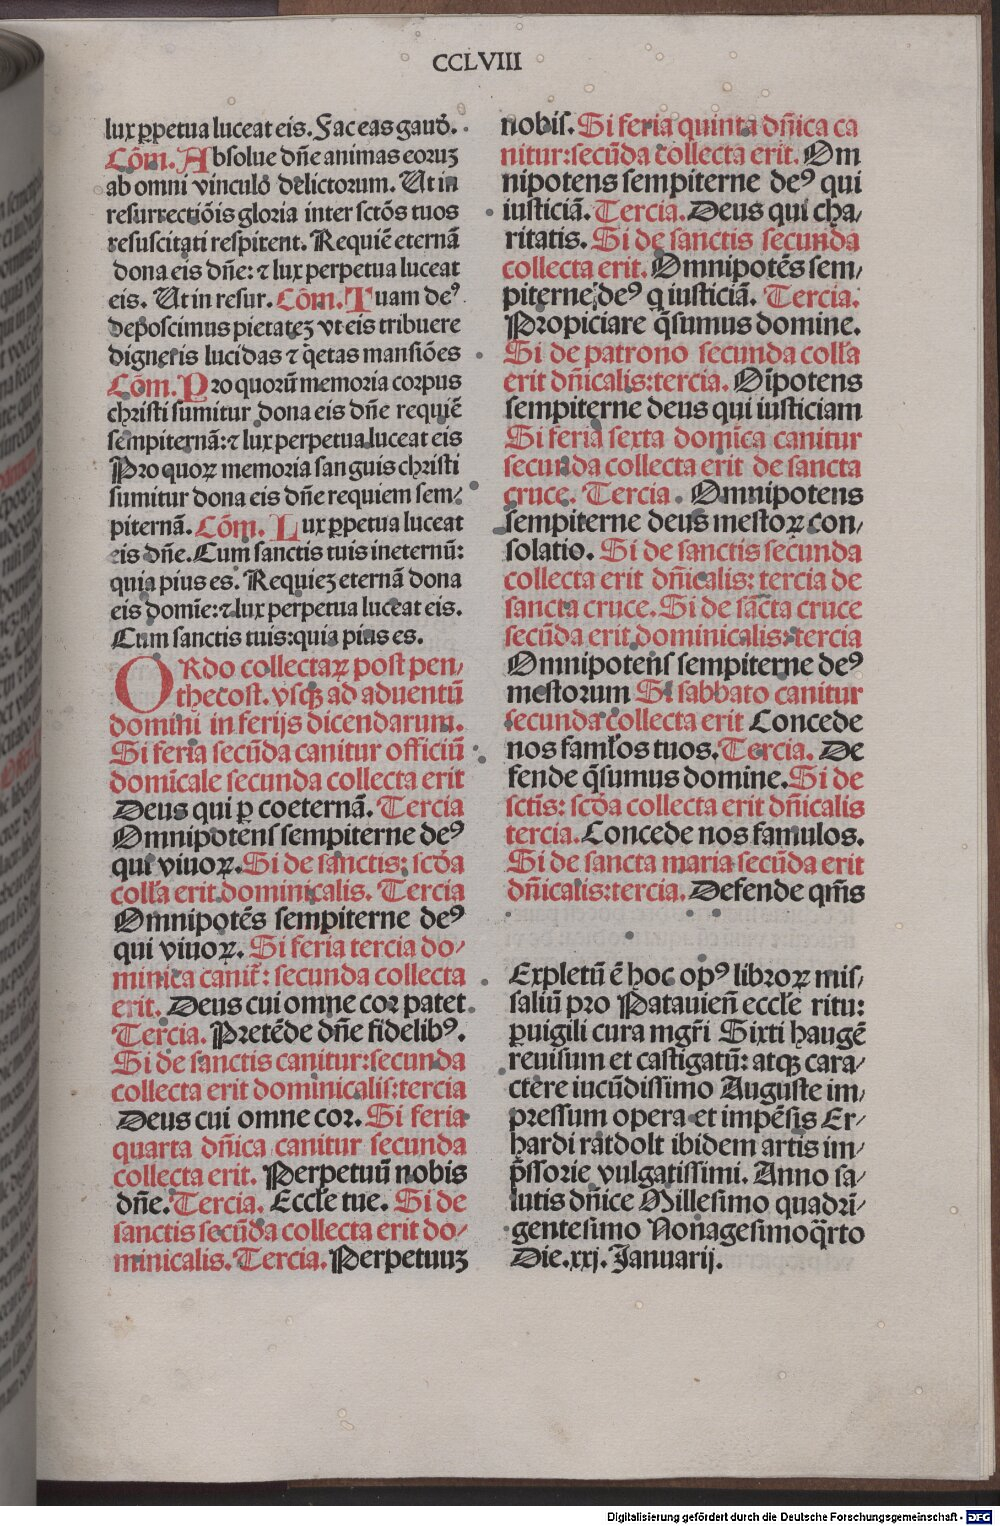 CCLVIII
lux ꝑpetua luceat eis. Fac eas gaud̄.
Cōm. Absolue dn̄e animas eoruꝫ
ab omni vinculo delictorum. Ut in
resurrectiōis gloria inter sctōs tuos
resuscitati respirent. Requiē eternā
dona eis dn̄e: ⁊ lux perpetua luceat
eis. Ut in resur. Cōm. Tuam deꝰ
deposcimus pietateꝫ vt eis tribuere
digneris lucidas ⁊ q̄etas mansiōes
Cōm. Pro quorū memoria corpus
christi sumitur dona eis dn̄e requiē
sempiternā: ⁊ lux perpetua luceat eis
Pro quoꝝ memoria sanguis christi
sumitur dona eis dn̄e requiem sem/
piternā. Cōm. Lux ꝑpetua luceat
eis dn̄e. Cum sanctis tuis ineternū:
quia pius es. Requieꝫ eternā dona
eis domīe: ⁊ lux perpetua luceat eis.
Cum sanctis tuis: quia pius es.
ORdo collectaꝝ post pen/
thecost. vsqꝫ ad aduentū
domini in ferijs dicendarum.
Si feria secūda canitur officiū
domīcale secunda collecta erit
Deus qui ꝑ coeternā. Tercia
Omnipotens sempiterne deꝰ
qui viuoꝝ. Si de sanctis: scd̄a
coll'a erit dominicalis. Tercia
Omnipotēs sempiterne deꝰ
qui viuoꝝ. Si feria tercia do/
minica canit̄: secunda collecta
erit. Deus cui omne cor patet.
Tercia. Pretēde dn̄e fidelibꝰ.
Si de sanctis canitur: secunda
collecta erit dominicalis: tercia
Deus cui omne cor. Si feria
quarta dn̄ica canitur secunda
collecta erit. Perpetuū nobis
dn̄e. Tercia. Eccl'e tue. Si de
sanctis secūda collecta erit do/
minicalis. Tercia. Perpetuuꝫ
nobis. Si feria quinta dn̄ica ca
nitur: secūda collecta erit. Om
nipotens sempiterne deꝰ qui
iusticiā. Tercia. Deus qui cha/
ritatis. Si de sanctis secunda
collecta erit. Omnipotēs sem/
piterne deꝰ q iusticiā. Tercia.
Propiciare q̄sumus domine.
Si de patrono secunda coll'a
erit dn̄icalis: tercia. Oīpotens
sempiterne deus qui iusticiam
Si feria sexta domīca canitur
secunda collecta erit de sancta
cruce. Tercia. Omnipotens
sempiterne deus mestoꝝ con/
solatio. Si de sanctis secunda
collecta erit dn̄icalis: tercia de
sancta cruce. Si de sācta cruce
secūda erit dominicalis: tercia
Omnipotens sempiterne deꝰ
mestorum Si sabbato canitur
secunda collecta erit Concede
nos faml'os tuos. Tercia. De
fende q̄sumus domine. Si de
sctīs: scd̄a collecta erit dn̄icalis
tercia. Concede nos famulos.
Si de sancta maria secūda erit
dn̄icalis: tercia. Defende qm̄s
Expletū ē hoc opꝰ libroꝝ mis/
saliū pro Patauien̄ eccl'e ritu:
ꝑuigili cura mgr̄i Sixti haugē
reuisum et castigatū: atqꝫ cara/
ctere iucūdissimo Auguste im/
pressum opera et impēsis Er/
hardi ratdolt ibidem artis im/
p̄ssorie vulgatissimi. Anno sa/
lutis dn̄ice Millesimo quadri/
gentesimo Nonagesimoq̄rto
Die. xxj. Januarij.
Digitalisierung gefördert durch die Deutsche Forschungsgemeinschaft - DFG